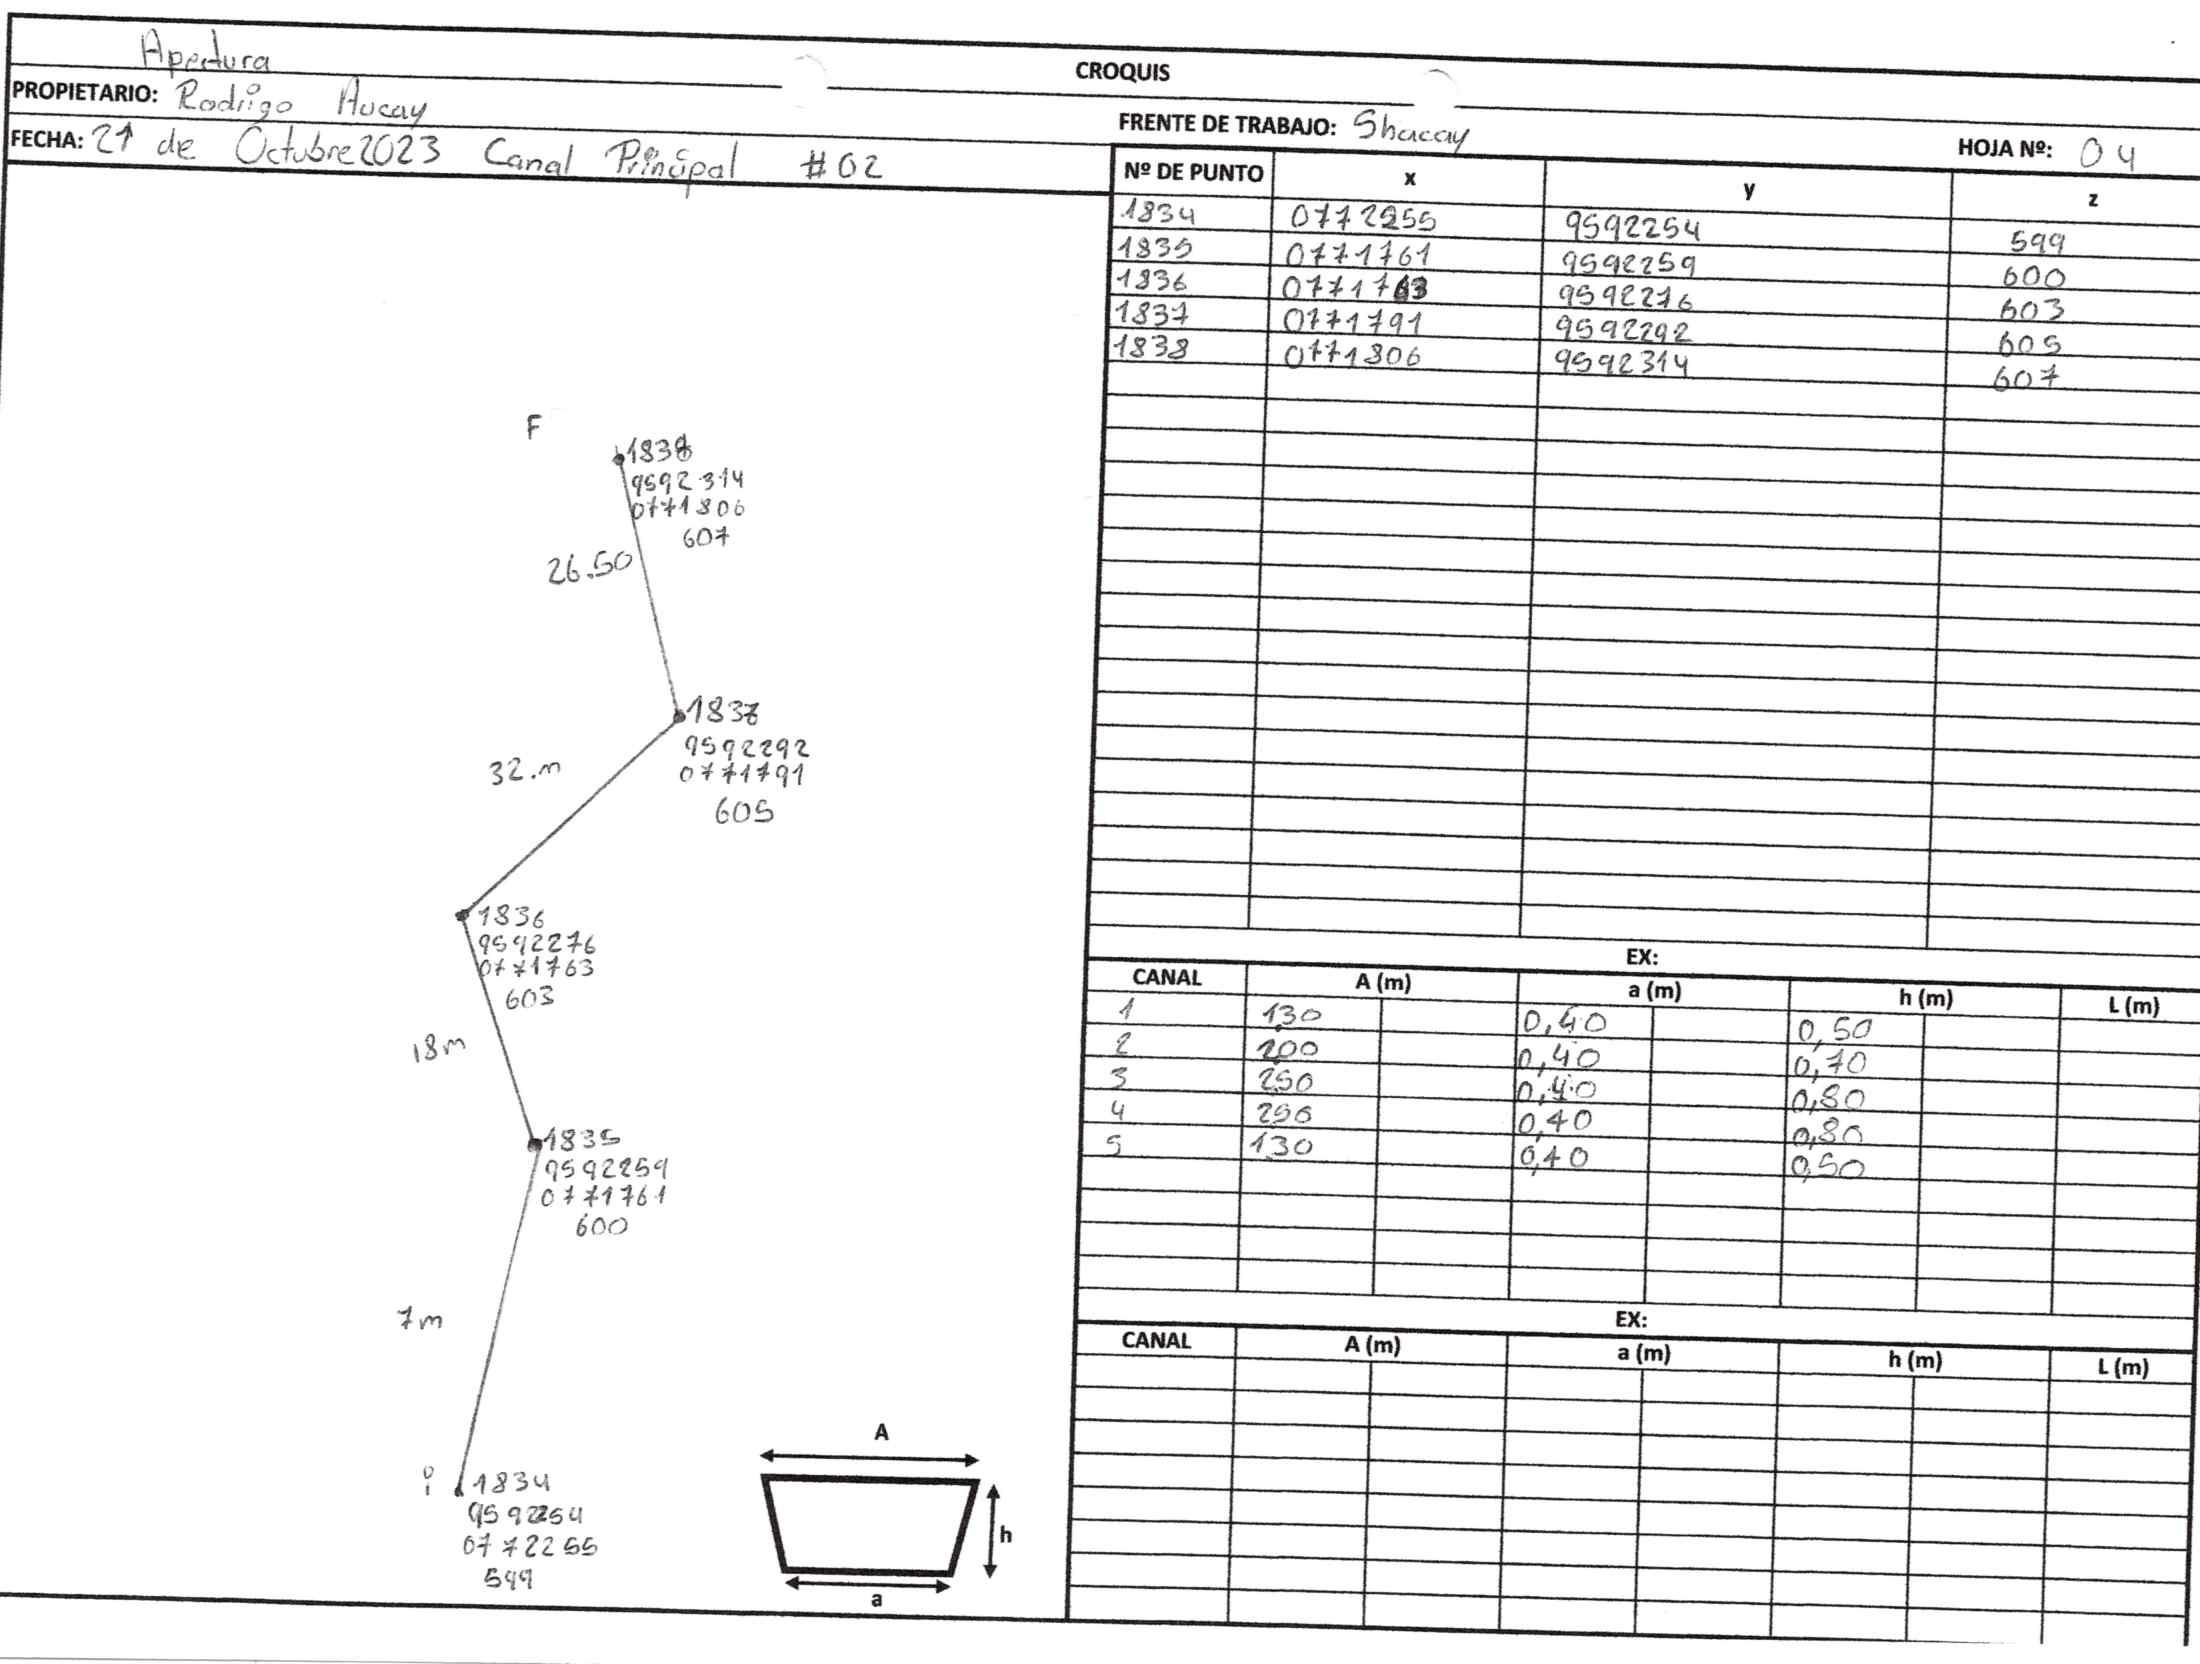 Apertura
CROQUIS
PROPIETARIO: Rodrigo Aucay
FRENTE DE TRABAJO: Shacay
HOJA Nº: 04
FECHA: 21 de Octubre 2023 Canal Principal #02
Nº DE PUNTO x y z
1834 0772255 9592254 599
1835 0771761 9592259 600
1836 0771763 9592276 603
1837 0771791 9592292 605
1838 0771806 9592314 607
F
1838
9592314
0771806
607
26.50
1837
9592292
0771791
605
32.m
1836
9592276
0771763
603
18m
1835
9592259
0771761
600
7m
i 1834
9592254
0772255
599
A
h
a
EX:
CANAL A (m) a (m) h (m) L (m)
1 1.30 0,40 0,50
2 200 0,40 0,70
3 250 0,40 0,80
4 250 0,40 0,80
5 1.30 0,40 0,50
EX:
CANAL A (m) a (m) h (m) L (m)